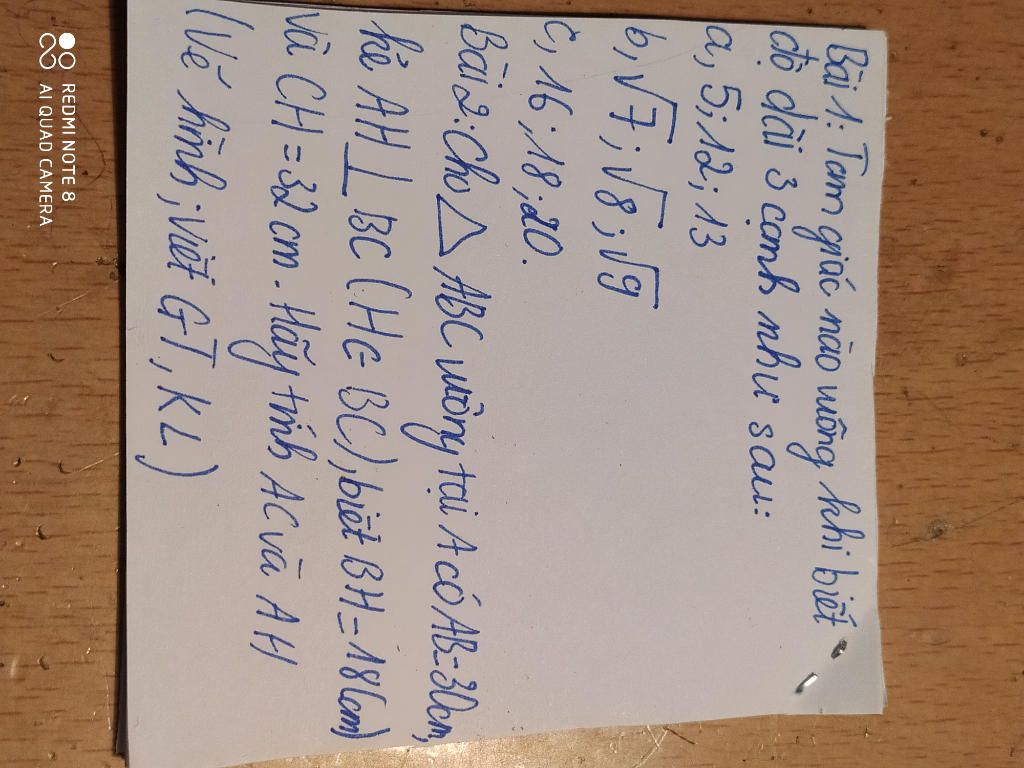 Bài 1: Tam giác nào vuông khi biết
độ dài 3 cạnh như sau:
a, 5; 12; 13
b, √7; √8; √9
c, 16; 18; 20.
Bài 2: Cho △ ABC vuông tại A có AB = 30cm,
kẻ AH ⊥ BC (H ∈ BC), biết BH = 18(cm)
và CH = 32 cm. Hãy tính AC và AH
(Vẽ hình; Viết GT, KL)
REDMI NOTE 8
AI QUAD CAMERA